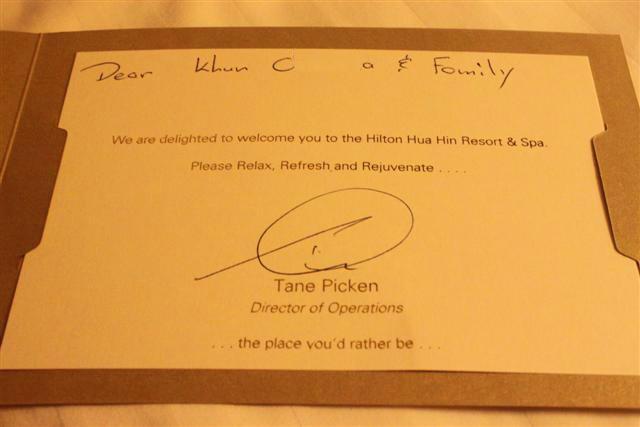 Dear Khun C a & Family
We are delighted to welcome you to the Hilton Hua Hin Resort & Spa.
Please Relax, Refresh and Rejuvenate . . . .
Tane Picken
Director of Operations
. . . the place you'd rather be . . .